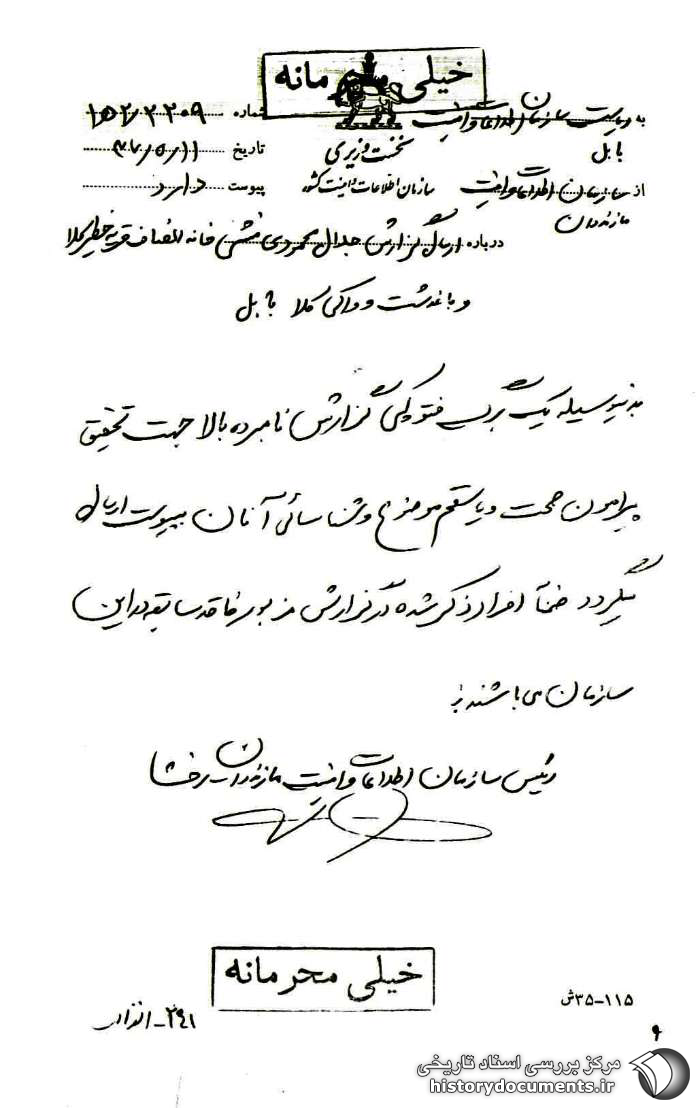 خیلی محرمانه
به ریاست سازمان اطلاعات و امنیت شماره ۱۵۲/۲۲۰۹
بابل نخست وزیری تاریخ ۳۷/۵/۱۱
از سازمان اطلاعات و امنیت سازمان اطلاعات و امنیت کشور پیوست دارد
مازندران
درباره ارسال گزارش جلال محمودی منشی خانه انصاف قریه خطیرکلا
و باغدشت و واکی کلا بابل
بدینوسیله یک برگ فتوکپی گزارش نامبرده بالا جهت تحقیق
پیرامون صحت و یا سقم موضوع و شناسائی آنان بپیوست ارسال
میگردد ضمناً افراد ذکر شده در گزارش مزبور فاقد سابقه در این
سازمان می باشند
رئیس سازمان اطلاعات و امنیت مازندران رخشا
خیلی محرمانه
۱۱۵-۳۵ش
مرکز بررسی اسناد تاریخی
historydocuments.ir